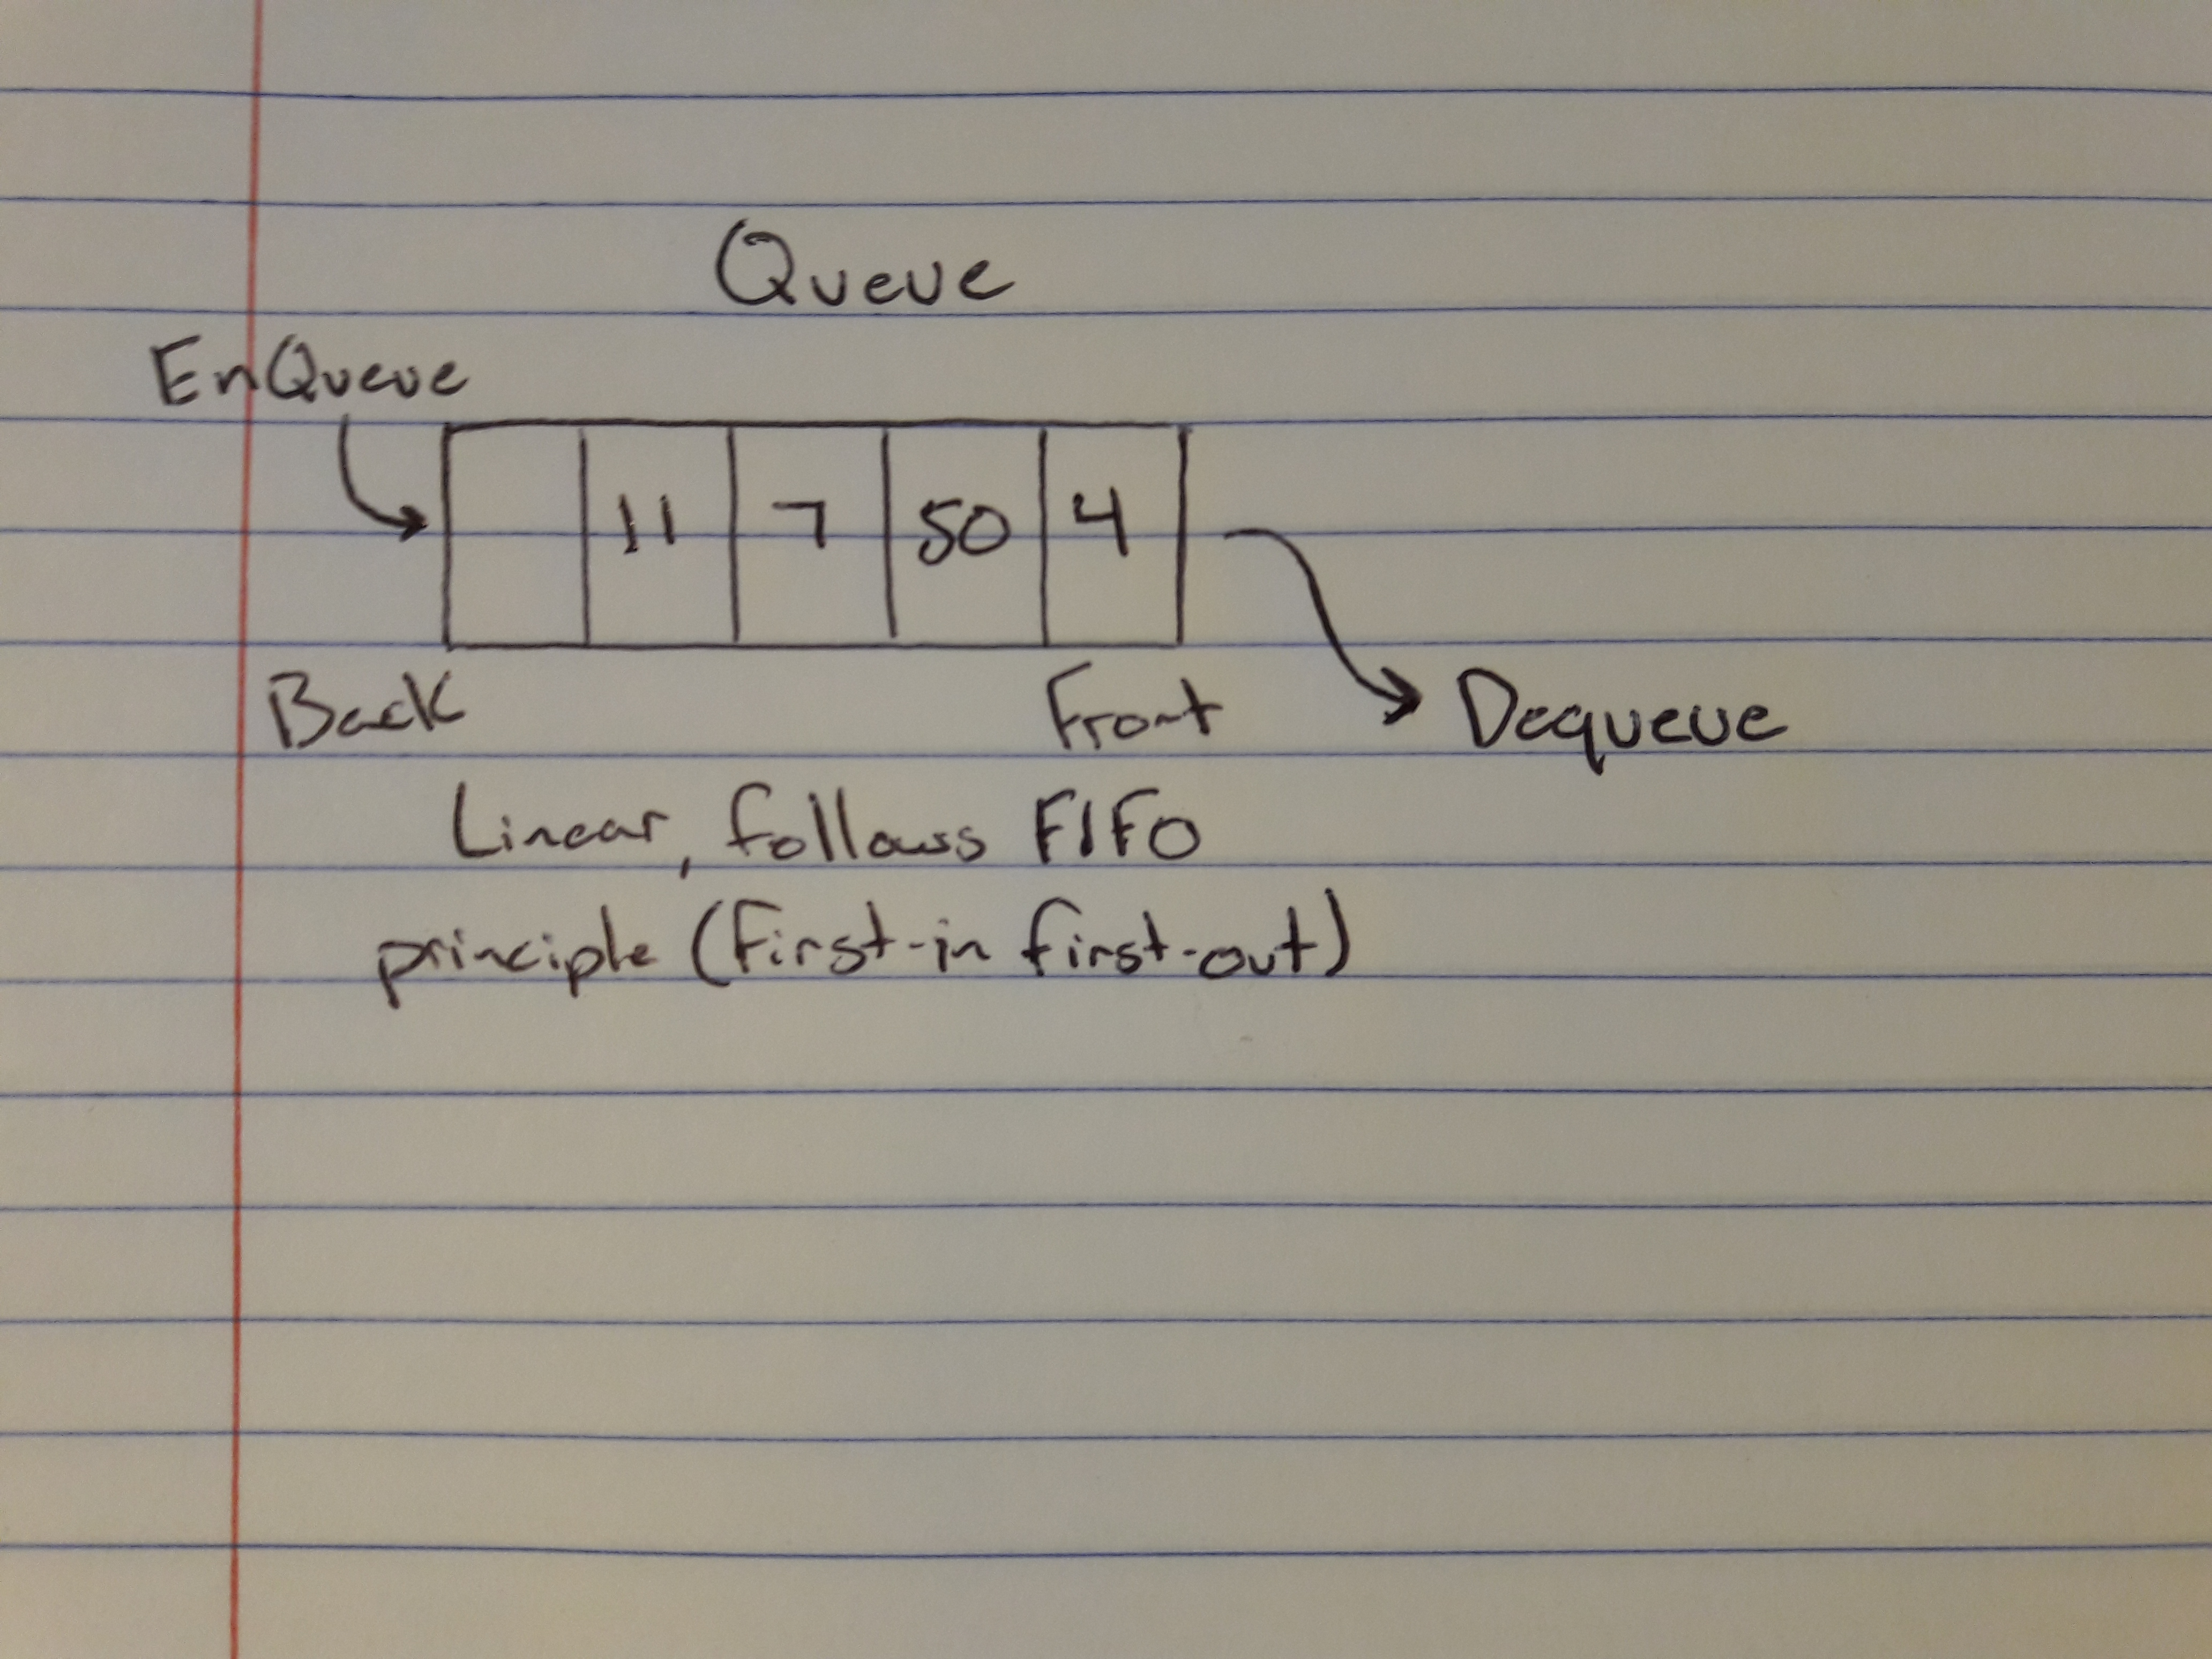 Queue
EnQueue
11 7 50 4
Back Front Dequeue
Linear, follows FIFO
principle (First-in first-out)